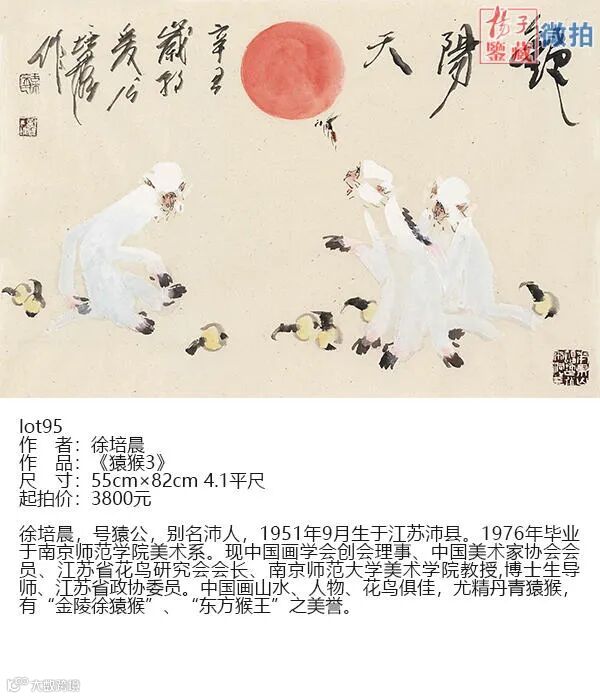 艳阳天
辛丑
岁朝
爰公
培晨
作
扬子
鉴藏
微拍
lot95
作　者：徐培晨
作　品：《猿猴3》
尺　寸：55cm×82cm 4.1平尺
起拍价：3800元
徐培晨，号猿公，别名沛人，1951年9月生于江苏沛县。1976年毕业
于南京师范学院美术系。现中国画学会创会理事、中国美术家协会会
员、江苏省花鸟研究会会长、南京师范大学美术学院教授,博士生导
师、江苏省政协委员。中国画山水、人物、花鸟俱佳，尤精丹青猿猴，
有“金陵徐猿猴”、“东方猴王”之美誉。
大数跨境